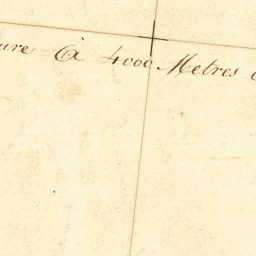 ure à 4000 Metres